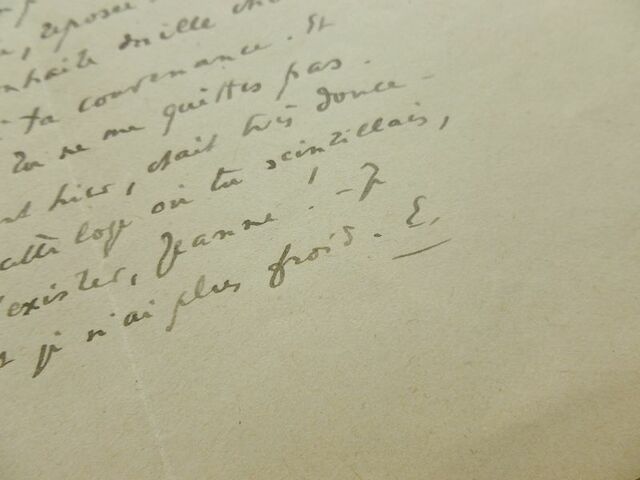 , reposée
onhaite mille cho
ta convenance. Et
Tu ne me quittes pas.
nt hier, était très douce -
cette loge où tu scintillais,
'exister, Jeanne ! - J
t je n'ai plus froid. E.